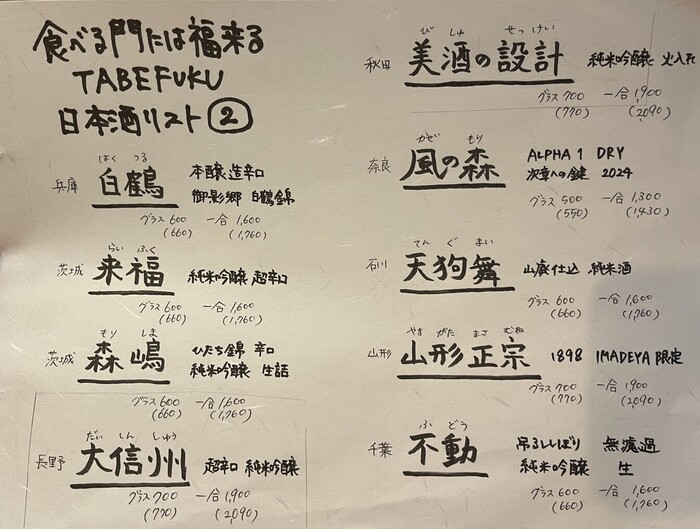 食べる門には福来る
TABEFUKU
日本酒リスト②
はく つる
兵庫 白鶴 本醸造辛口
御影郷 白鶴錦
グラス600 一合1,600
(660) (1,760)
らい ふく
茨城 来福 純米吟醸 超辛口
グラス600 一合1,600
(660) (1,760)
もり しま
茨城 森嶋 ひたち錦 辛口
純米吟醸 生詰
グラス600 一合1,600
(660) (1,760)
だい しん しゅう
長野 大信州 超辛口 純米吟醸
グラス700 一合1,900
(770) (2,090)
び しゅ せっ けい
秋田 美酒の設計 純米吟醸 火入れ
グラス700 一合1,900
(770) (2,090)
かぜ もり
奈良 風の森 ALPHA 1 DRY
次章への鍵 2024
グラス500 一合1,300
(550) (1,430)
てん ぐ まい
石川 天狗舞 山廃仕込 純米酒
グラス600 一合1,600
(660) (1,760)
やま がた まさ むね
山形 山形正宗 1898 IMADEYA限定
グラス700 一合1,900
(770) (2,090)
ふ どう
千葉 不動 吊るししぼり 無濾過
純米吟醸 生
グラス600 一合1,600
(660) (1,760)